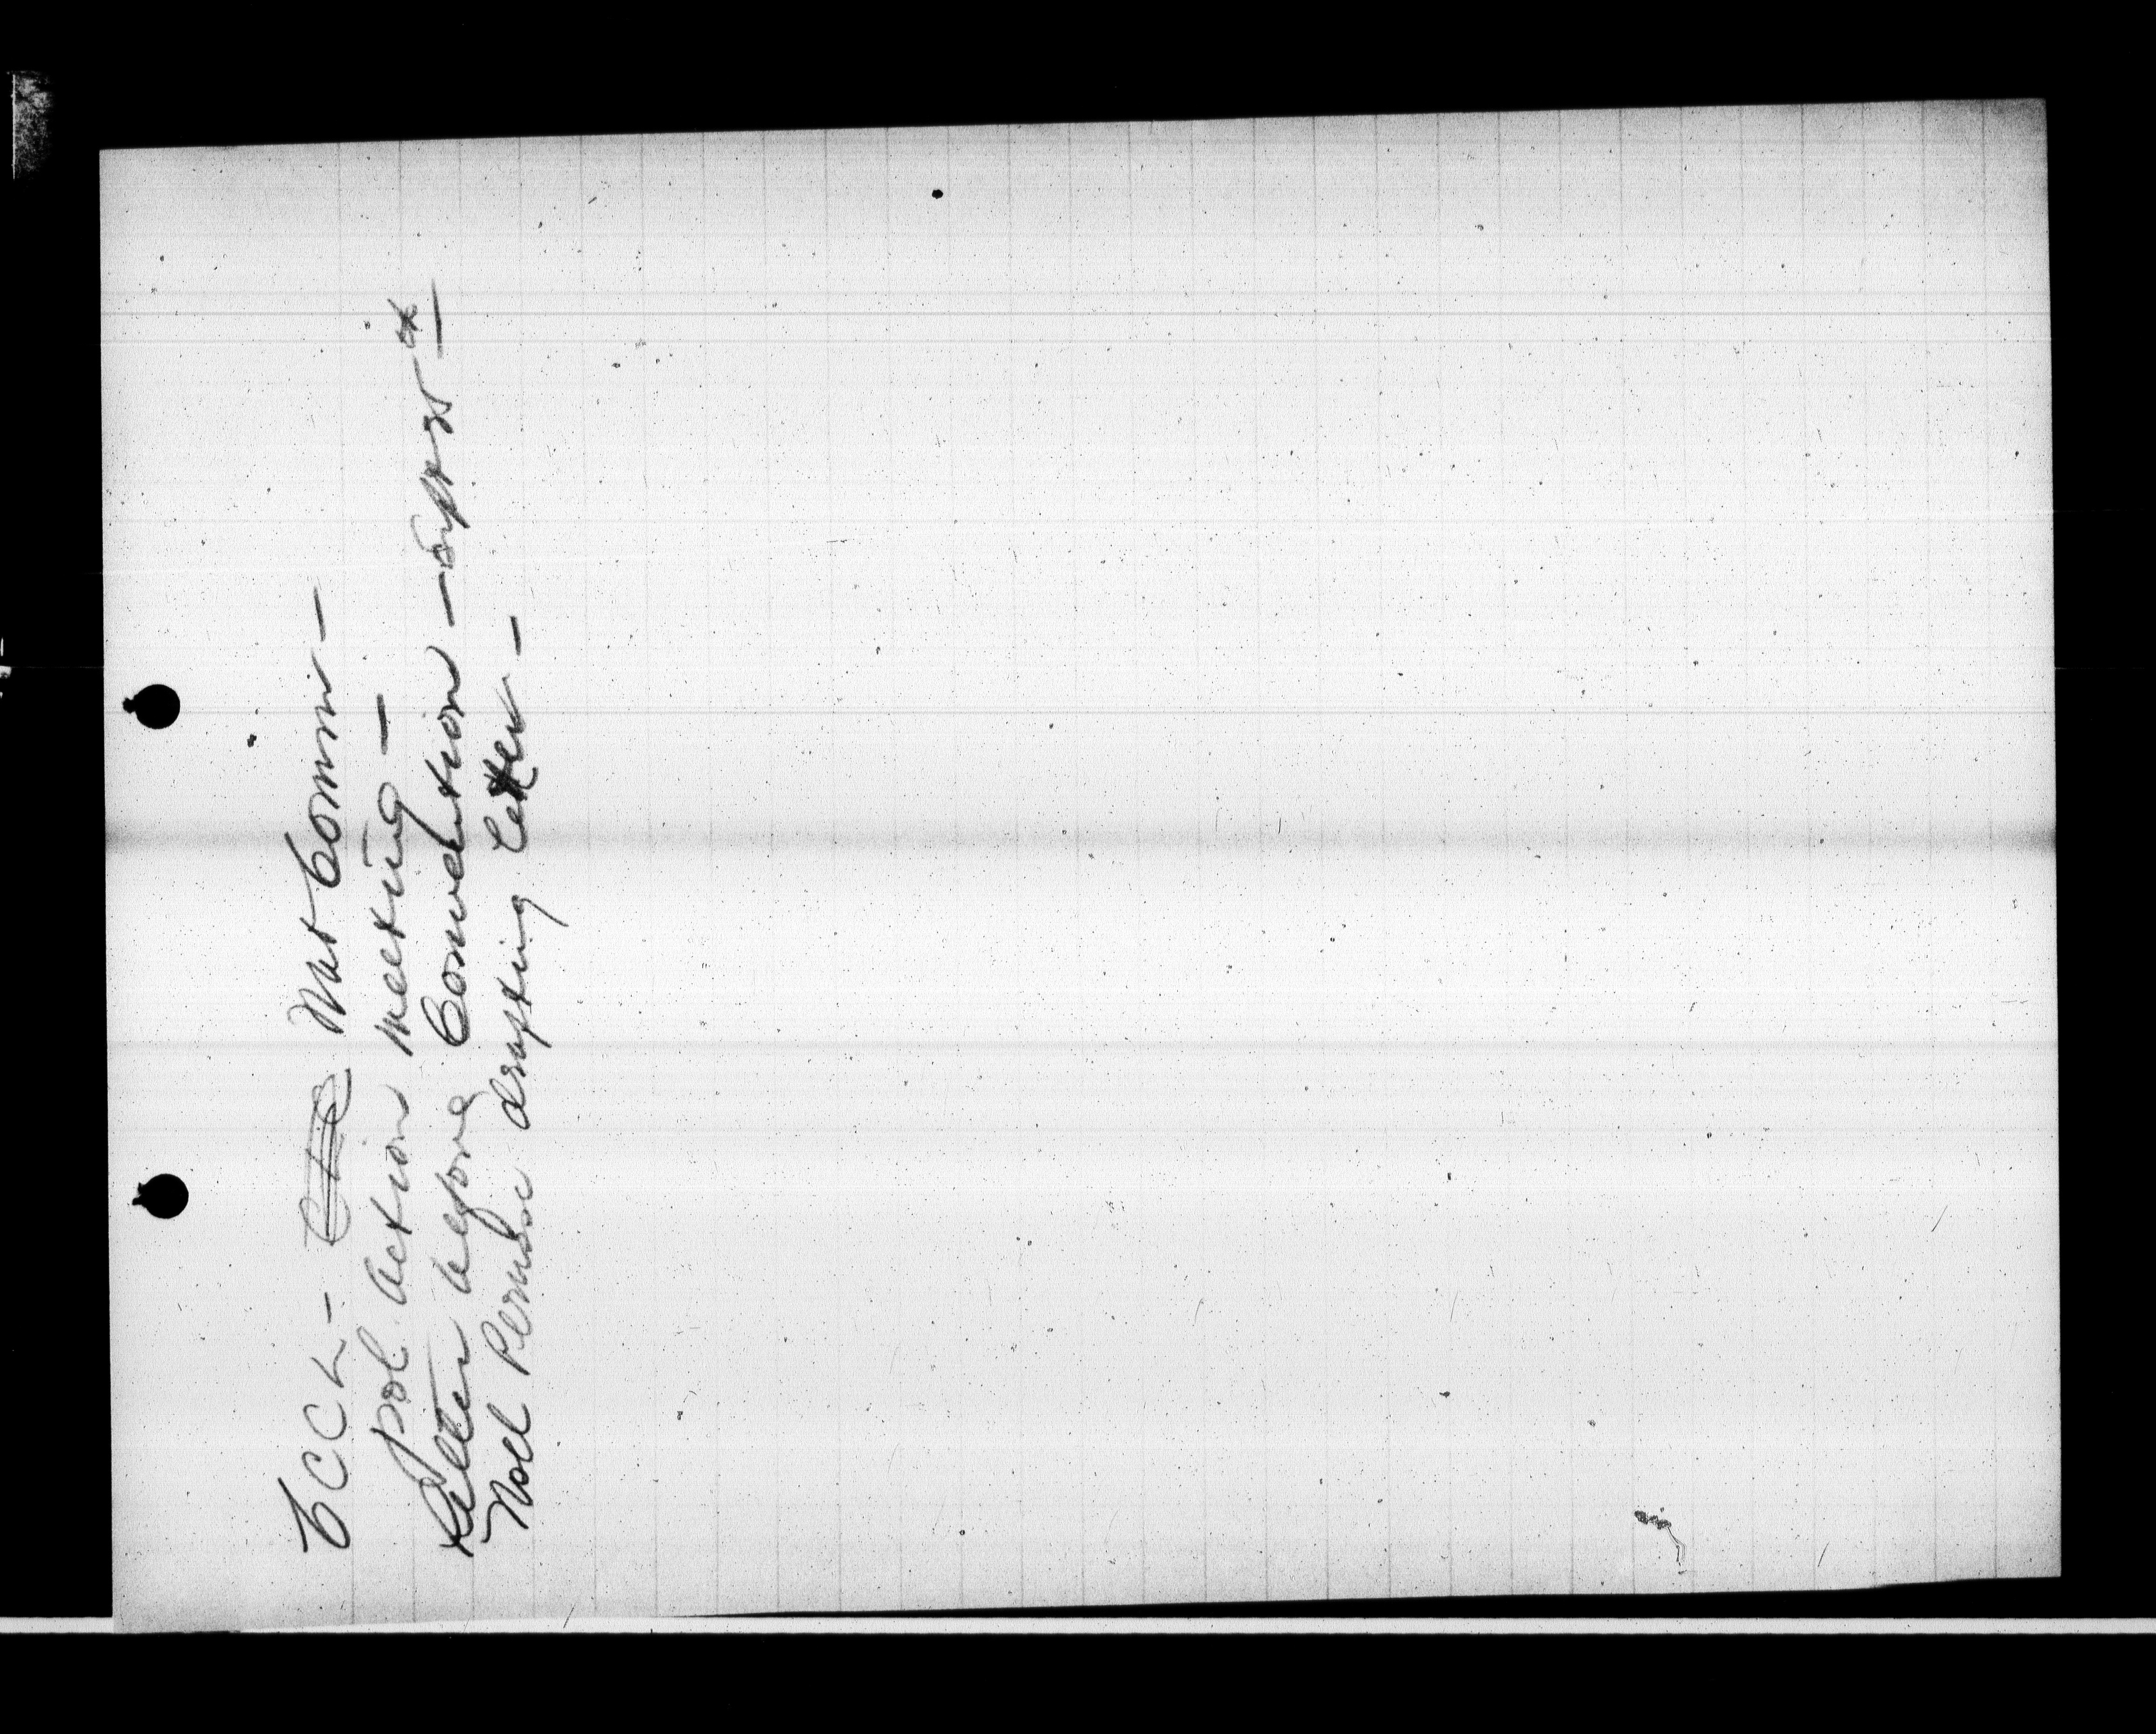 CCL - Nat Comm -
pol. action meeting -
Letter before Convention - Sept 21st
Noel drafting letter -